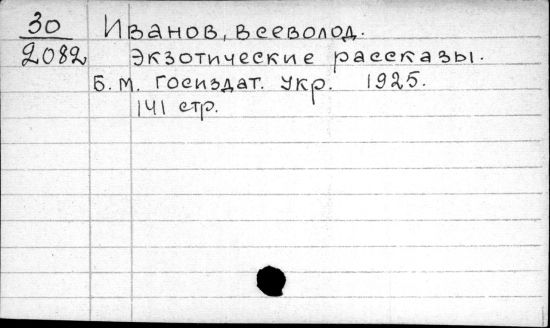 30 Иванов, Всеволод.
2082 Экзотические рассказы.
Б. м. Госиздат. Укр. 1925.
141 стр.